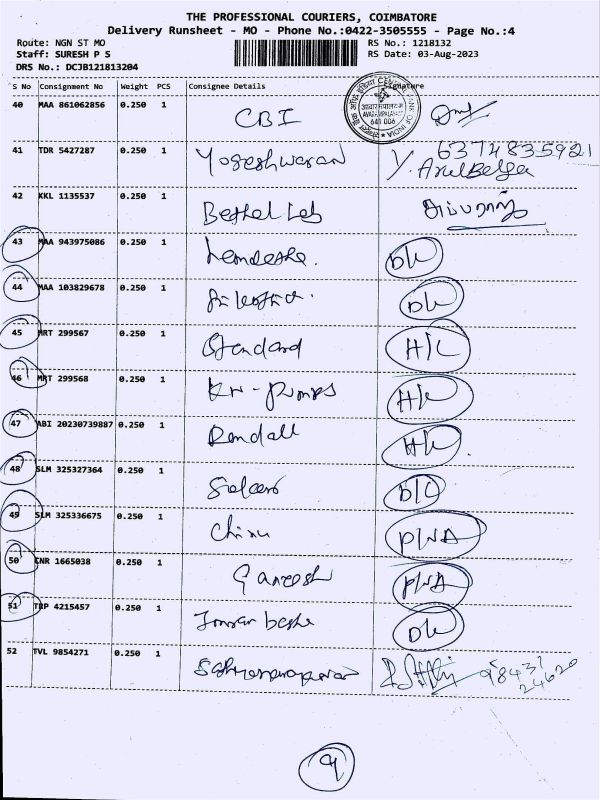 THE PROFESSIONAL COURIERS, COIMBATORE
Delivery Runsheet - MO - Phone No.:0422-3505555 - Page No.:4
Route: NGN ST MO RS No.: 1218132
Staff: SURESH P S RS Date: 03-Aug-2023
DRS No.: DCJB121813204
S No Consignment No Weight PCS Consignee Details Signature
40 MAA 861062856 0.250 1 CBI
41 TDR 5427287 0.250 1 Yogeshwaran 6374835921
42 KKL 1135537 0.250 1 Bethel Lab
43 MAA 943975086 0.250 1 D/L
44 MAA 103829678 0.250 1 D/L
45 MRT 299567 0.250 1 Standard H/L
46 MRT 299568 0.250 1 KN-Pumps H/L
47 ABI 20230739887 0.250 1 Randall H/L
48 SLM 325327364 0.250 1 D/C
49 SLM 325336675 0.250 1 Chinu P/NA
50 CNR 1665038 0.250 1 Ganesh P/NA
51 TRP 4215457 0.250 1 D/L
52 TVL 9854271 0.250 1 98431 24620
9